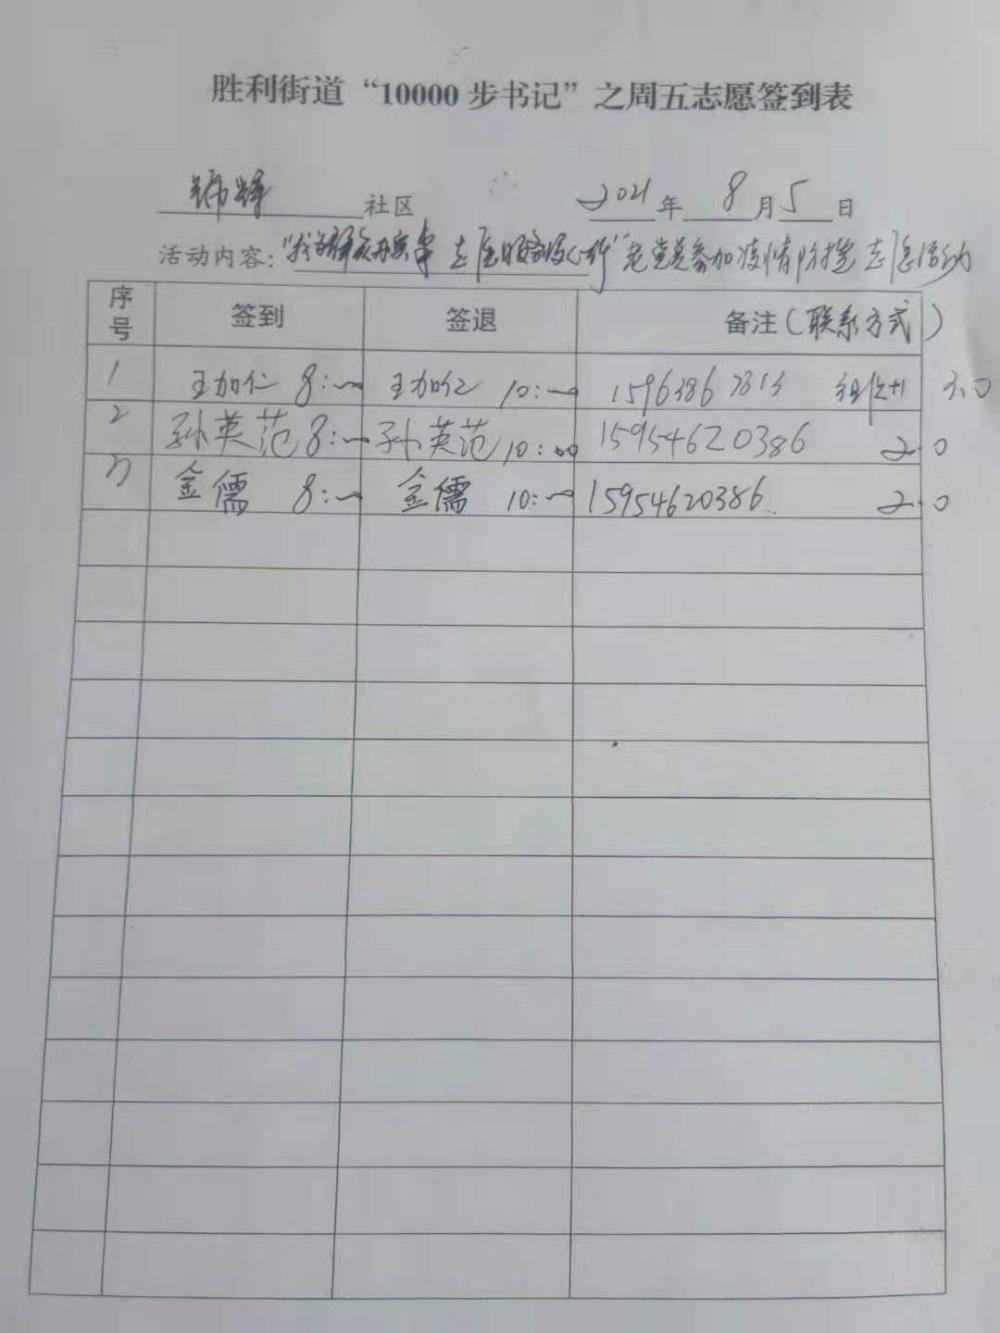 胜利街道“10000步书记”之周五志愿签到表
锦辉 社区 2021年 8月5日
活动内容：“我为群众办实事 志愿服务暖心行”老党员参加疫情防控志愿活动
序号 签到 签退 备注（联系方式）
1 王加仁 8:00 王加仁 10:00 15963867813 3.0
2 孙英范 8:00 孙英范 10:00 15954620386 2.0
3 金儒 8:00 金儒 10:00 15954620386 2.0